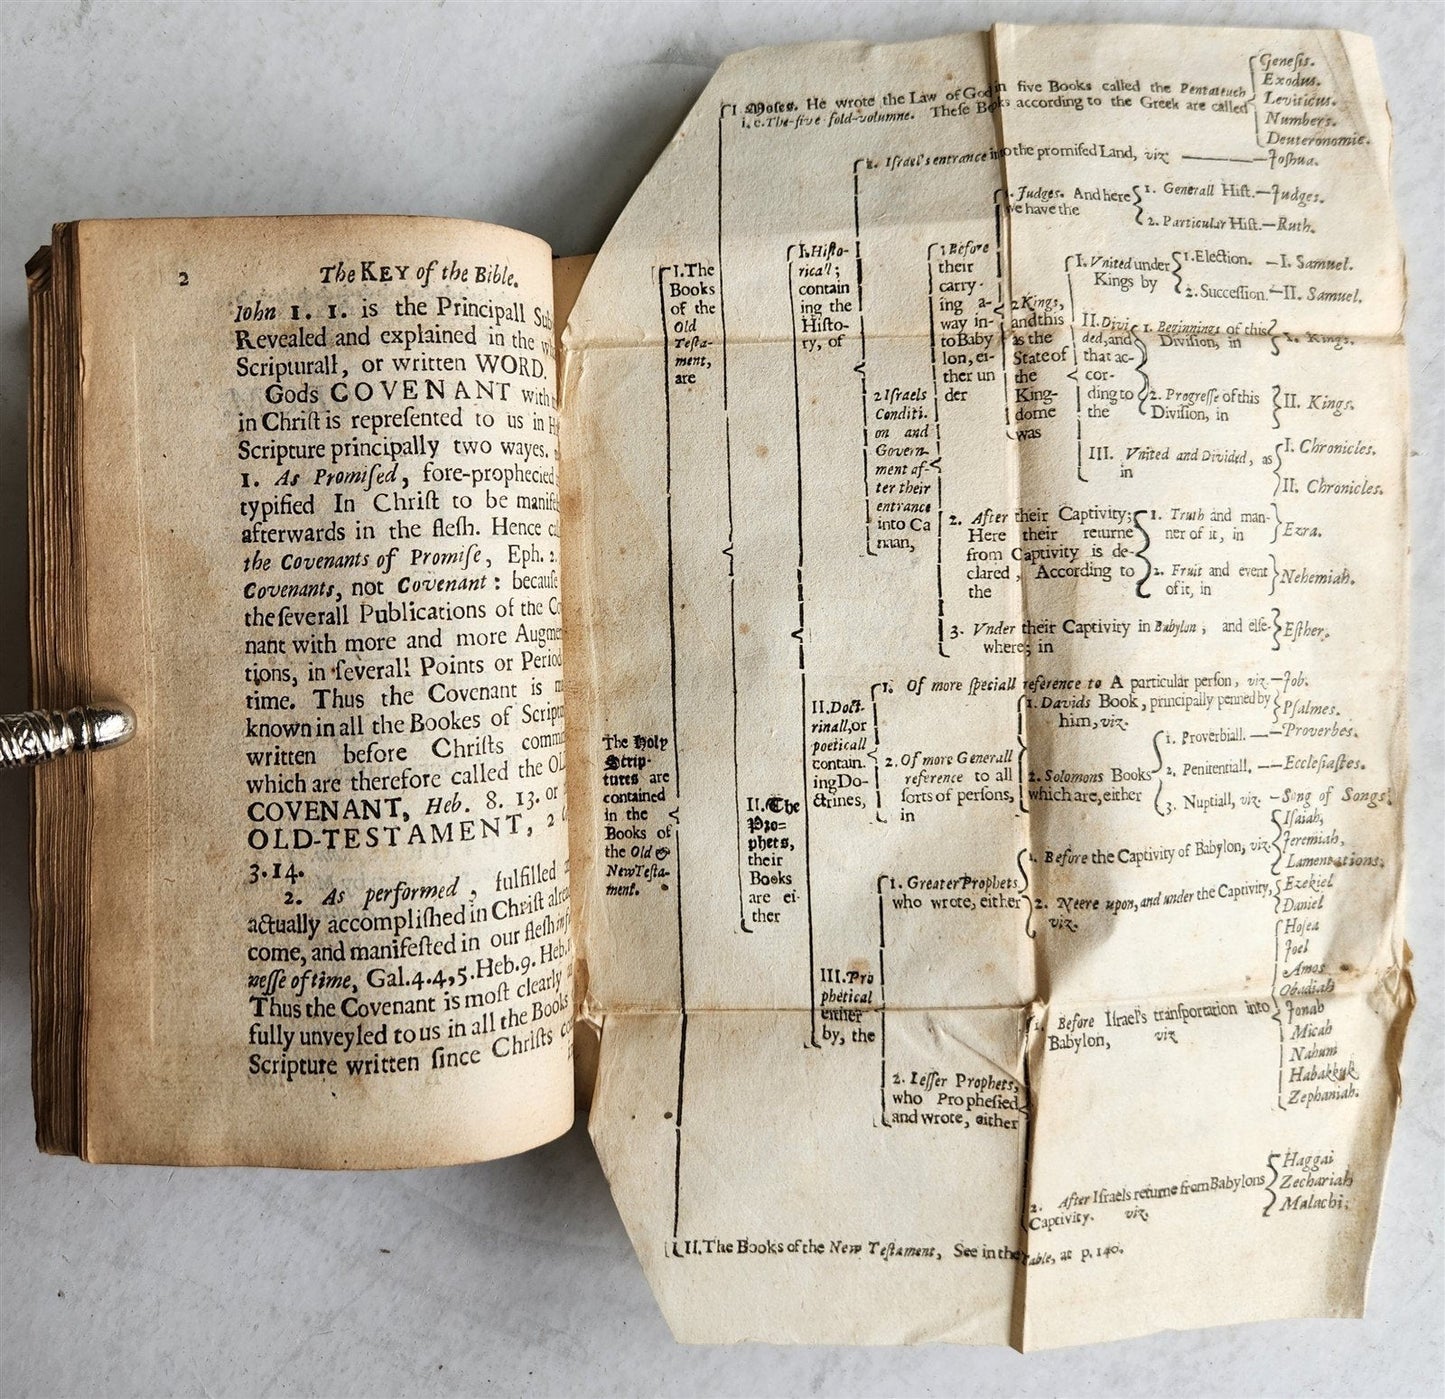 2 The KEY of the Bible.
Iohn 1. 1. is the Principall
Revealed and explained in the
Scripturall, or written WORD.
Gods COVENANT with
in Chriſt is repreſented to us in
Scripture principally two wayes.
1. As Promiſed, fore-prophecied
typified In Chriſt to be
afterwards in the fleſh. Hence
the Covenants of Promiſe, Eph. 2.
Covenants, not Covenant: becauſe
the ſeverall Publications of the
nant with more and more
tions, in ſeverall Points or
time. Thus the Covenant is
known in all the Bookes of
written before Chriſts
which are therefore called the
COVENANT, Heb. 8. 13. or
OLD-TESTAMENT, 2
3.14.
2. As performed, fulfilled
actually accompliſhed in Chriſt
come, and manifeſted in our fleſh
neſſe of time, Gal.4.4,5. Heb.9. Heb.
Thus the Covenant is moſt clearly
fully unveyled to us in all the Books
Scripture written ſince Chriſts
The Holy
Scrip-
tures are
contained
in the
Books of
the Old &
New Teſta-
ment.
I. The
Books
of the
Old
Teſta-
ment,
are
I. Moſes. He wrote the Law of God in five Books called the Pentateuch
i. e. The-five fold-volumne. Theſe Books according to the Greek are called
Geneſis.
Exodus.
Leviticus.
Numbers.
Deuteronomie.
II. The
Pro=
phets,
their
Books
are ei-
ther
I. Hiſto-
ricall;
contain
ing the
Hiſto-
ry, of
1. Iſrael's entrance into the promiſed Land, viz — Joſhua.
2 Iſraels
Conditi-
on and
Govern-
ment af-
ter their
entrance
into Ca
naan,
1 Before
their
carry-
ing a-
way in-
to Baby
lon, ei-
ther un
der
1. Judges. And here
we have the
1. Generall Hiſt.—Judges.
2. Particular Hiſt.—Ruth.
2 Kings,
and this
as the
State of
the
King-
dome
was
I. Vnited under
Kings by
1. Election. —I. Samuel.
2. Succeſſion.—II. Samuel.
II. Divi
ded, and
that ac-
cor-
ding to
the
1. Beginnings of this
Diviſion, in
I. Kings.
2. Progreſſe of this
Diviſion, in
II. Kings.
III. Vnited and Divided, as
in
I. Chronicles.
II. Chronicles.
2. After their Captivity;
Here their returne
from Captivity is de-
clared, According to
the
1. Truth and man-
ner of it, in
Ezra.
2. Fruit and event
of it, in
Nehemiah.
3. Vnder their Captivity in Babylon, and elſe-
where; in
Eſther.
II. Doct-
rinall, or
poeticall
contain.
ing Do-
ctrines,
1. Of more ſpeciall reference to A particular perſon, viz.—Job.
2. Of more Generall
reference to all
ſorts of perſons,
in
1. Davids Book, principally penned by
him, viz.
Pſalmes.
2. Solomons Books
which are, either
1. Proverbiall. —Proverbes.
2. Penitentiall. —Eccleſiaſtes.
3. Nuptiall, viz. —Song of Songs.
III. Pro
phetical
either
by, the
1. Greater Prophets
who wrote, either
1. Before the Captivity of Babylon, viz.
Iſaiah,
Jeremiah,
Lamentations.
2. Neere upon, and under the Captivity,
viz.
Ezekiel
Daniel
2. Leſſer Prophets,
who Propheſied
and wrote, either
1. Before Iſrael's tranſportation into
Babylon, viz
Hoſea
Joel
Amos
Obadiah
Jonah
Micah
Nahum
Habakkuk
Zephaniah.
2. After Iſraels returne from Babylons
Captivity. viz.
Haggai
Zechariah
Malachi;
II. The Books of the New Teſtament, See in the Table, at p. 140.